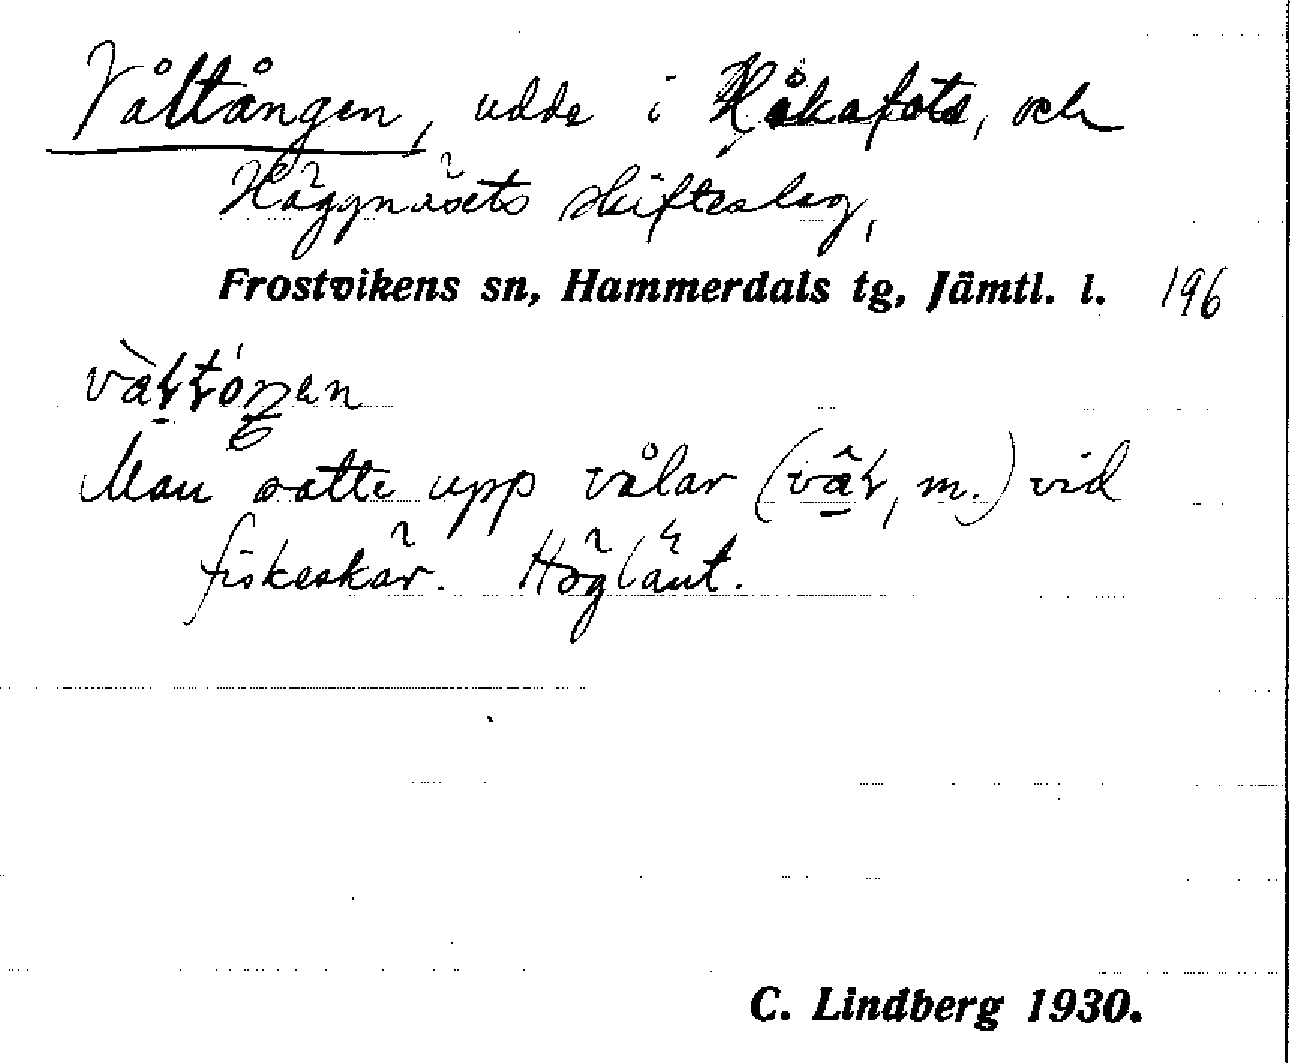 Våltången, udde i Håkafots, och
Häggnäsets skifteslag,
Frostvikens sn, Hammerdals tg, Jämtl. l. 196
Man satte upp vålar (vâł, m.) vid
fiskeskär. Högläut.
C. Lindberg 1930.